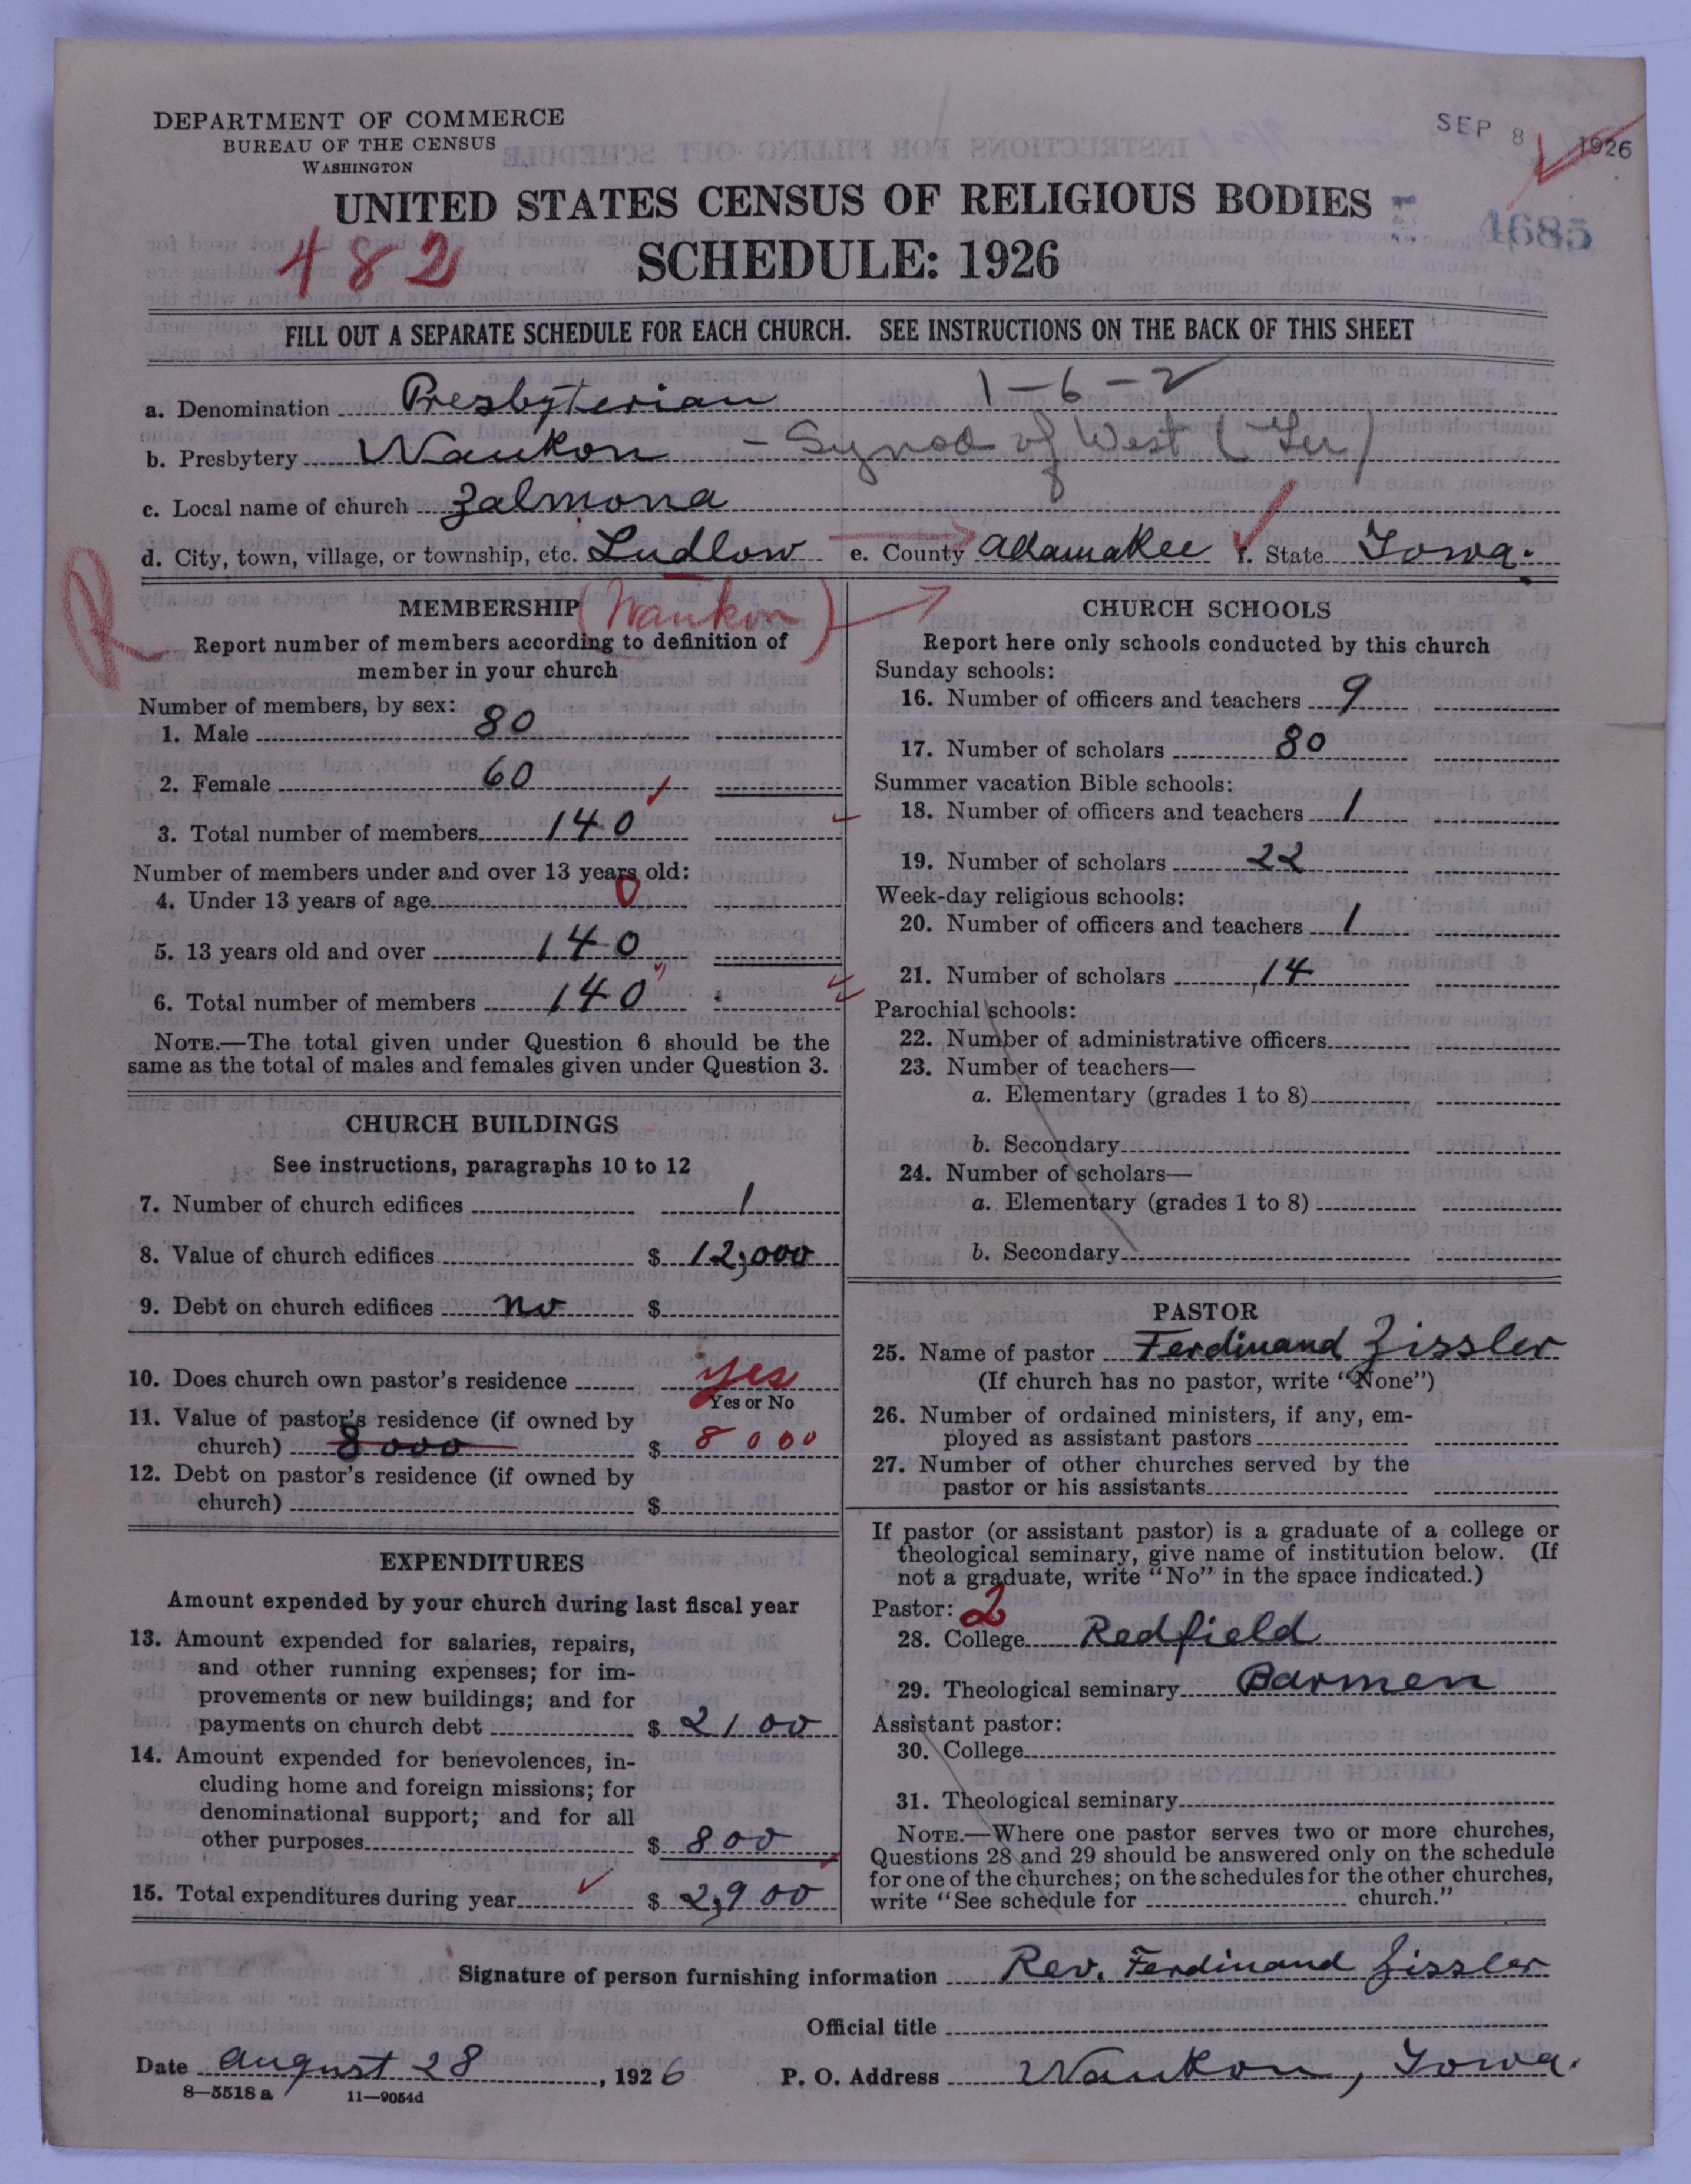 DEPARTMENT OF COMMERCE
BUREAU OF THE CENSUS
WASHINGTON
SEP 8 1926
UNITED STATES CENSUS OF RELIGIOUS BODIES
4685
482
SCHEDULE: 1926
FILL OUT A SEPARATE SCHEDULE FOR EACH CHURCH. SEE INSTRUCTIONS ON THE BACK OF THIS SHEET
1-6-2
a. Denomination Presbyterian
b. Presbytery Waukon - Synod of West (Ger)
c. Local name of church Zalmona
d. City, town, village, or township, etc. Ludlow e. County Allamakee f. State Iowa.
R
MEMBERSHIP (Waukon)
Report number of members according to definition of
member in your church
Number of members, by sex:
1. Male 80
2. Female 60
3. Total number of members 140
Number of members under and over 13 years old:
4. Under 13 years of age 0
5. 13 years old and over 140
6. Total number of members 140
NOTE.—The total given under Question 6 should be the
same as the total of males and females given under Question 3.
CHURCH BUILDINGS
See instructions, paragraphs 10 to 12
7. Number of church edifices 1
8. Value of church edifices $ 12,000
9. Debt on church edifices no $
10. Does church own pastor's residence yes
Yes or No
11. Value of pastor's residence (if owned by
church) 8000 $ 8000
12. Debt on pastor's residence (if owned by
church) $
EXPENDITURES
Amount expended by your church during last fiscal year
13. Amount expended for salaries, repairs,
and other running expenses; for im-
provements or new buildings; and for
payments on church debt $ 2100
14. Amount expended for benevolences, in-
cluding home and foreign missions; for
denominational support; and for all
other purposes $ 800
15. Total expenditures during year $ 2,900
CHURCH SCHOOLS
Report here only schools conducted by this church
Sunday schools:
16. Number of officers and teachers 9
17. Number of scholars 80
Summer vacation Bible schools:
18. Number of officers and teachers 1
19. Number of scholars 22
Week-day religious schools:
20. Number of officers and teachers 1
21. Number of scholars 14
Parochial schools:
22. Number of administrative officers
23. Number of teachers—
a. Elementary (grades 1 to 8)
b. Secondary
24. Number of scholars—
a. Elementary (grades 1 to 8)
b. Secondary
PASTOR
25. Name of pastor Ferdinand Zissler
(If church has no pastor, write "None")
26. Number of ordained ministers, if any, em-
ployed as assistant pastors
27. Number of other churches served by the
pastor or his assistants
If pastor (or assistant pastor) is a graduate of a college or
theological seminary, give name of institution below. (If
not a graduate, write "No" in the space indicated.)
Pastor: 2
28. College Redfield
29. Theological seminary Barmen
Assistant pastor:
30. College
31. Theological seminary
NOTE.—Where one pastor serves two or more churches,
Questions 28 and 29 should be answered only on the schedule
for one of the churches; on the schedules for the other churches,
write "See schedule for church."
Signature of person furnishing information Rev. Ferdinand Zissler
Official title
Date August 28, 1926 P. O. Address Waukon, Iowa.
8—5518 a 11—9054d